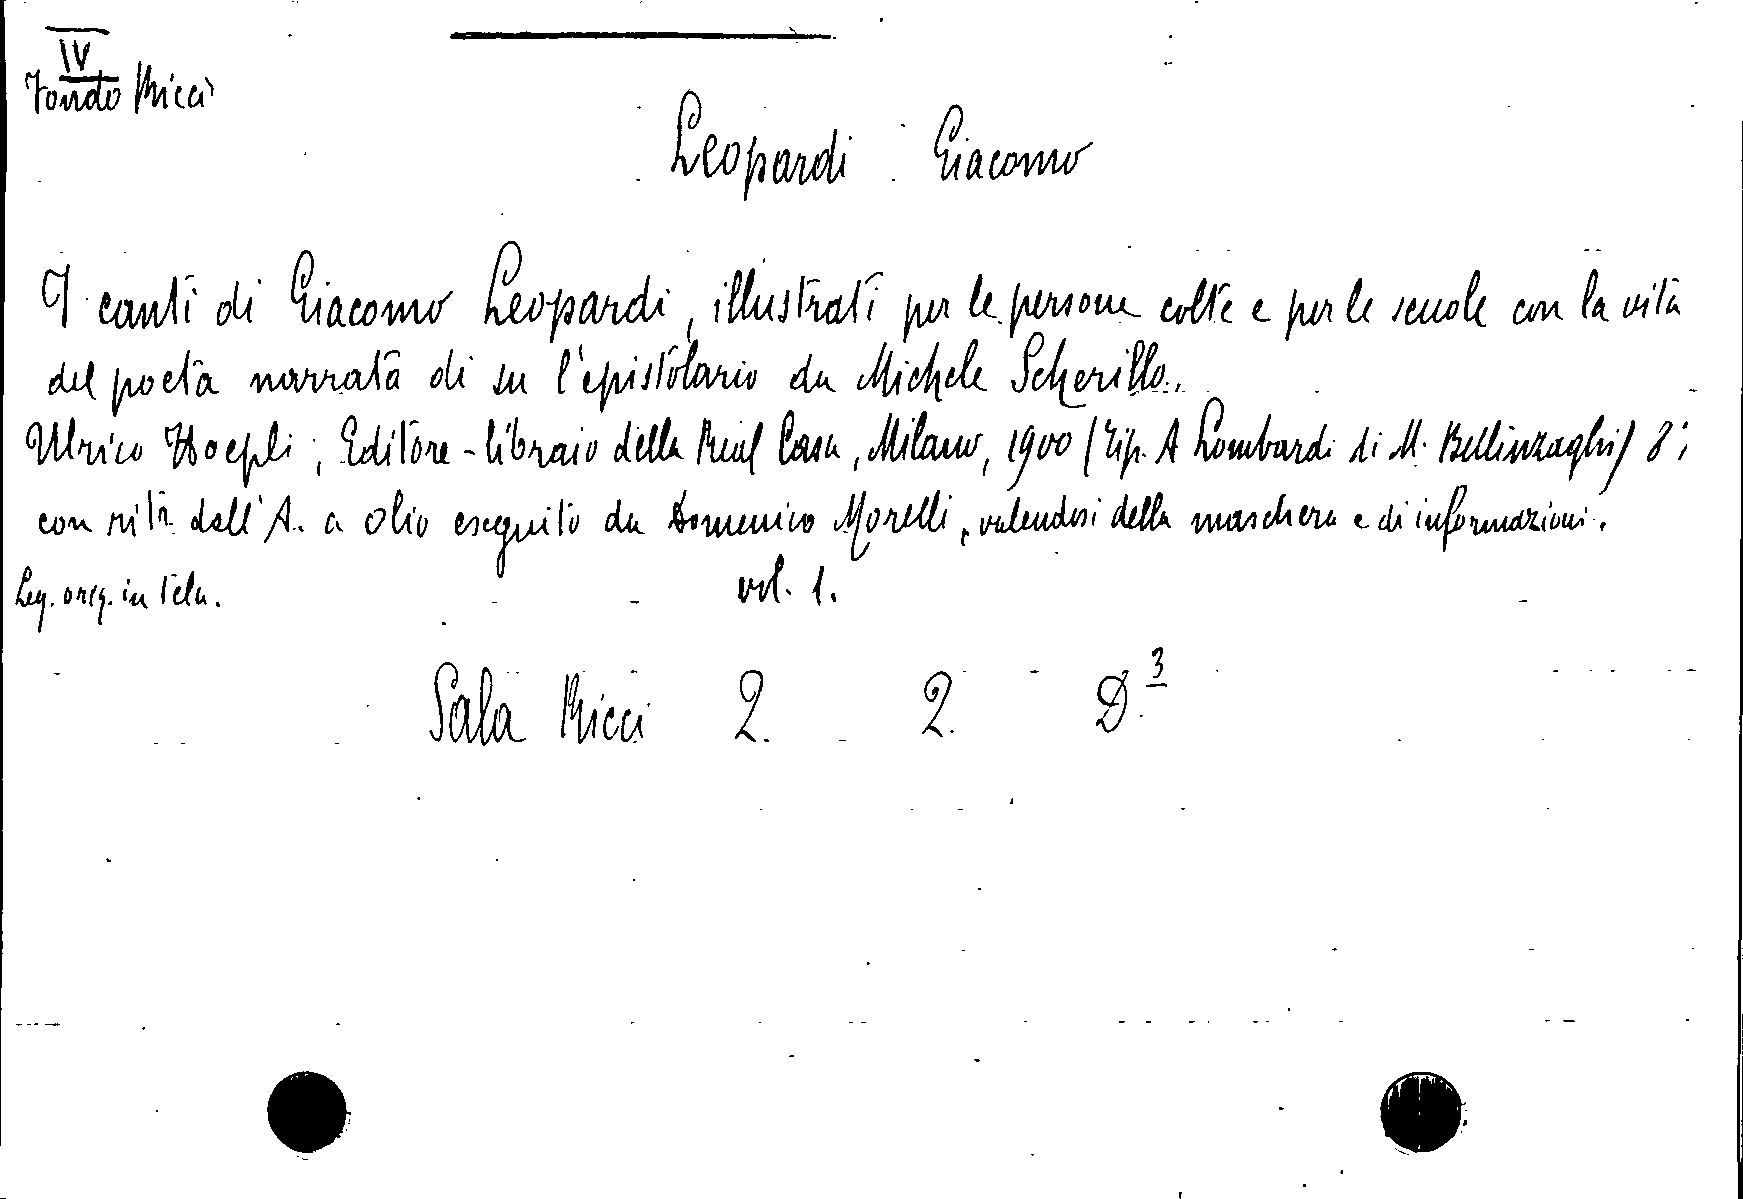 IV
Fondo Ricci
Leopardi Giacomo
I canti di Giacomo Leopardi, illustrati per le persone colte e per le scuole con la vita
del poeta narrata di su l'epistolario da Michele Scherillo.
Ulrico Hoepli, Editore-libraio della Real Casa, Milano, 1900 (Tip. A Lombardi di M. Bellinzaghi) 8°;
con rit. dell'A. a olio eseguito da Domenico Morelli, valendosi della maschera e di informazioni.
Leg. orig. in tela. vol. 1.
Sala Ricci 2. 2. D.3